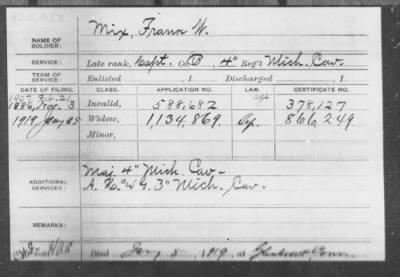 Mix, Frank W.
NAME OF SOLDIER:
SERVICE: Late rank, Capt. Co. D, 4" Reg't Mich. Cav.
TERM OF SERVICE: Enlisted , 1 Discharged , 1
DATE OF FILING. CLASS. APPLICATION NO. LAW. CERTIFICATE NO.
1886, Nov. 3 Invalid, 588,682 378,127
1919, Jan 25 Widow, 1,134,869. 866,249
Minor,
ADDITIONAL SERVICES: Maj. 4" Mich. Cav.
A. Mich. Cav.
REMARKS:
Died Jany 5, 1919, at Conn